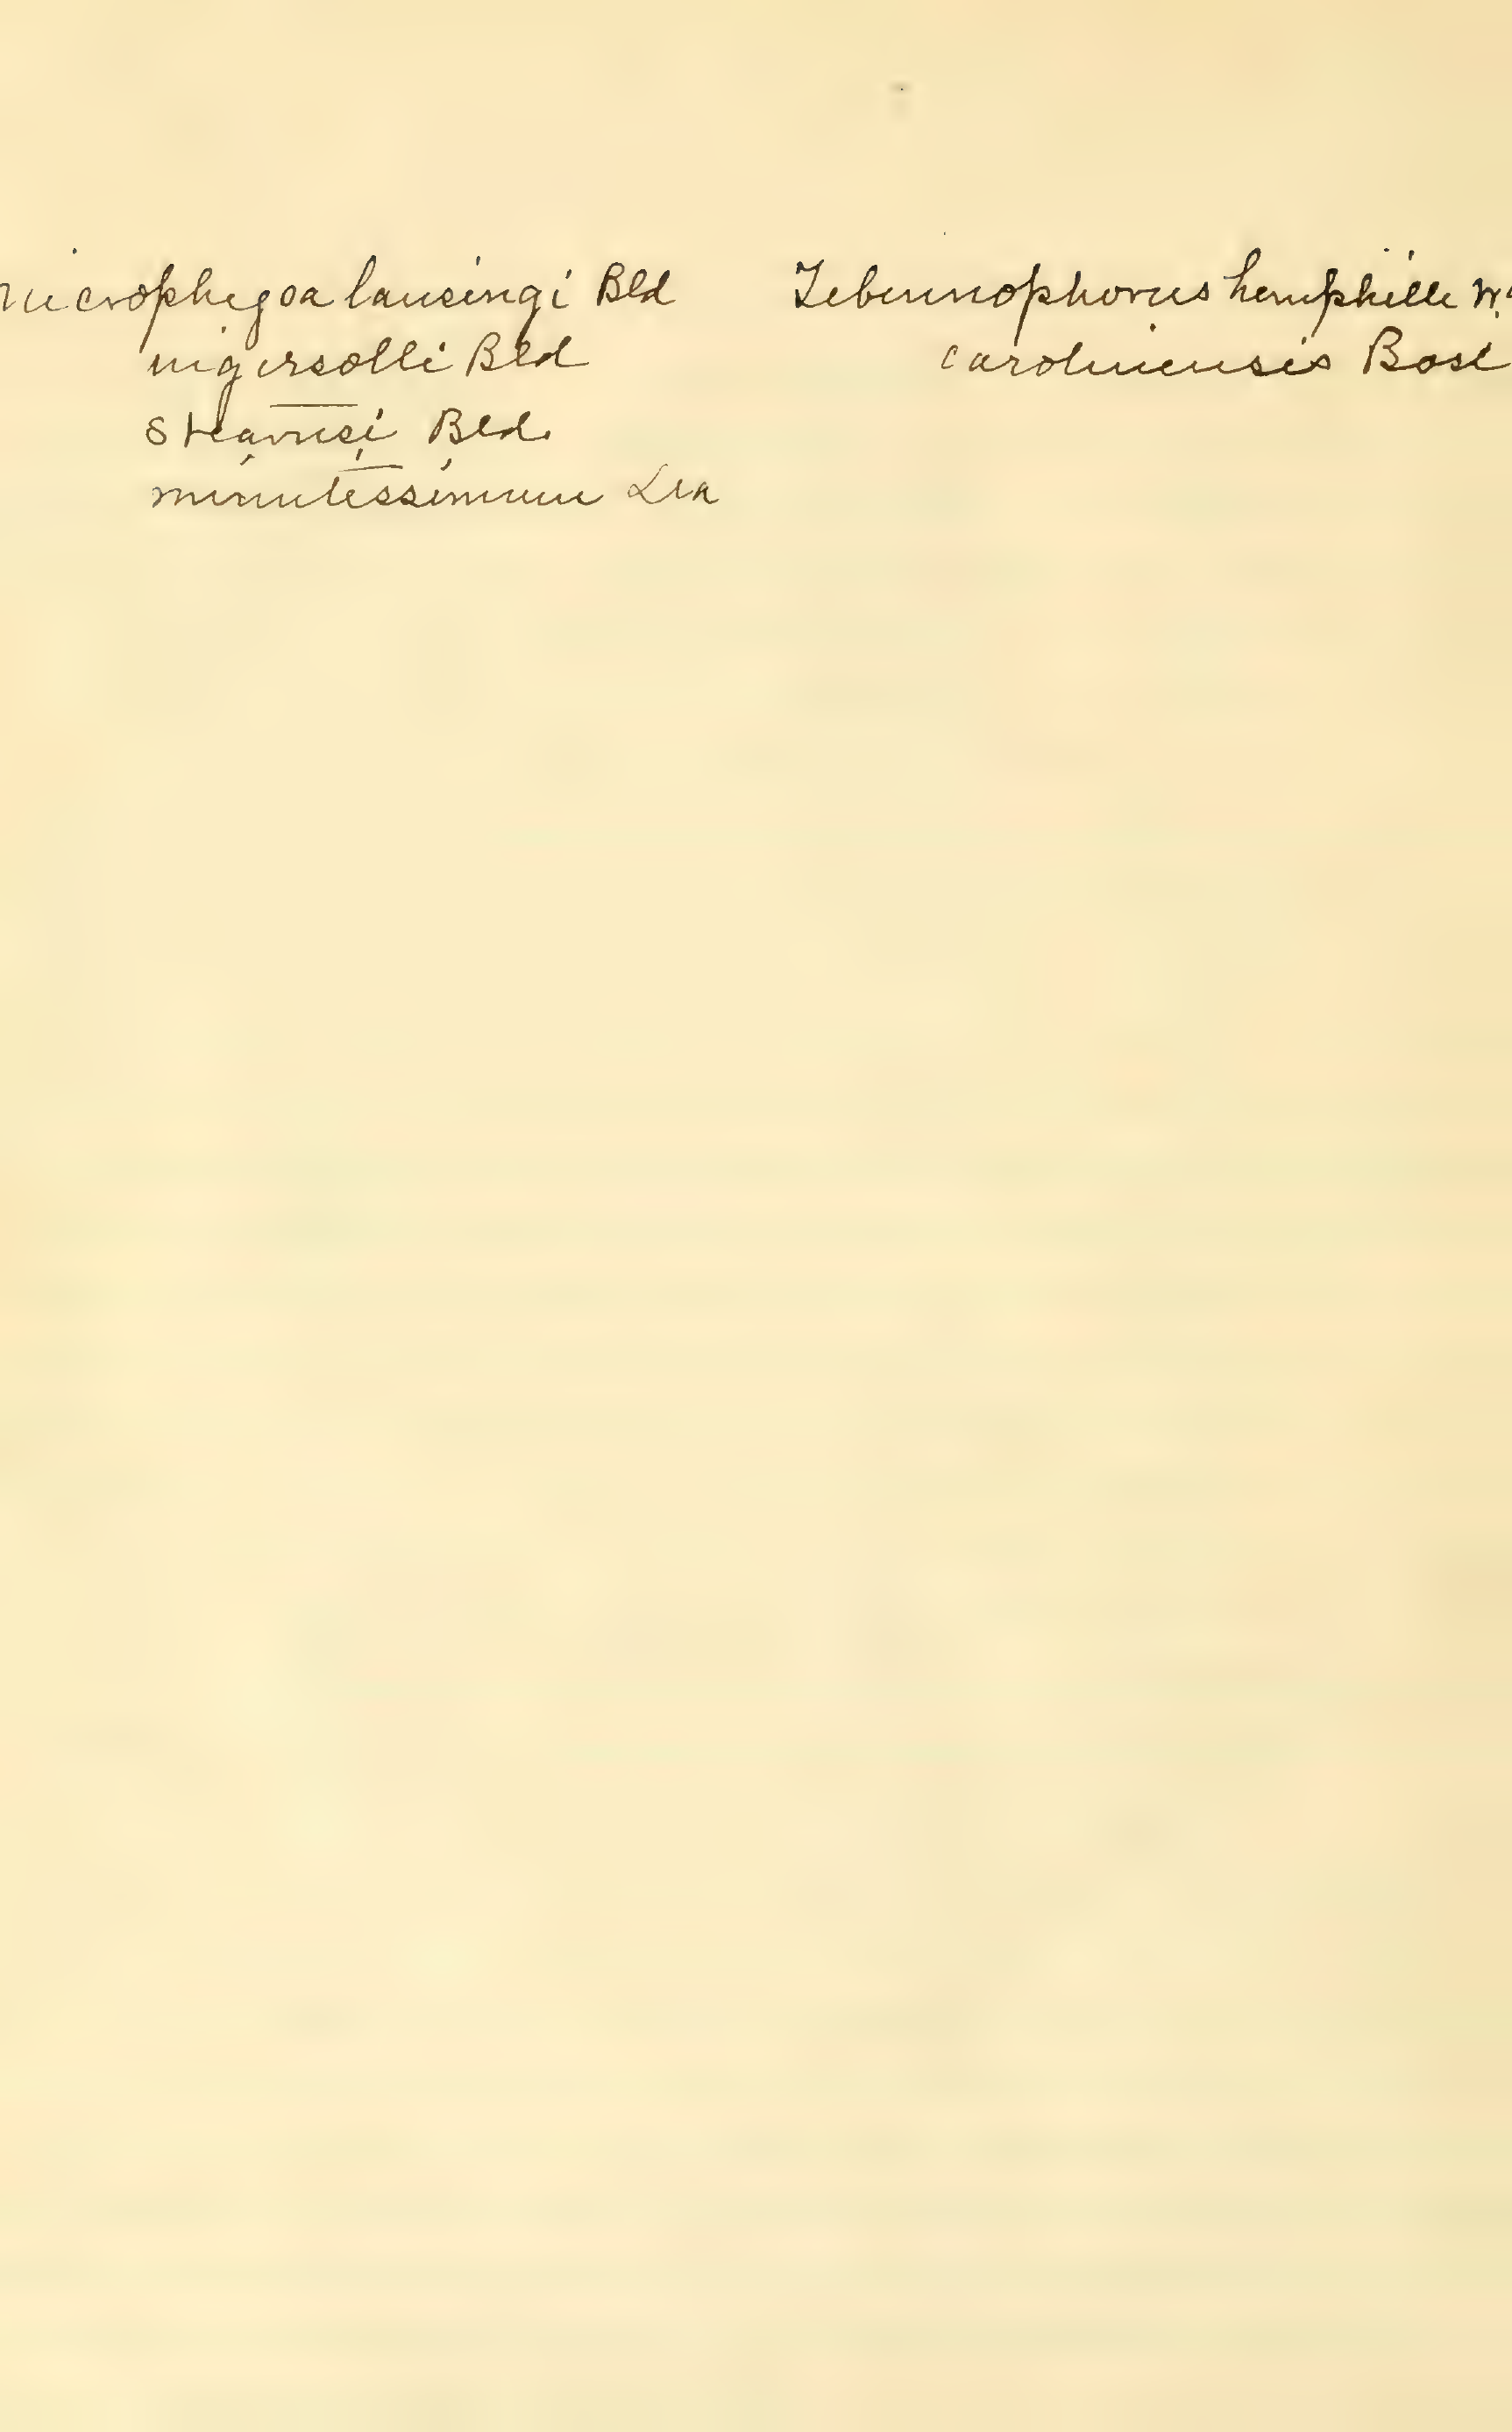 Microphysa lansingi Bld
ingersolli Bld
stearnsi Bld.
minutissimum Lea
Tebennophorus hemphilli W.
caroliniensis Bosc